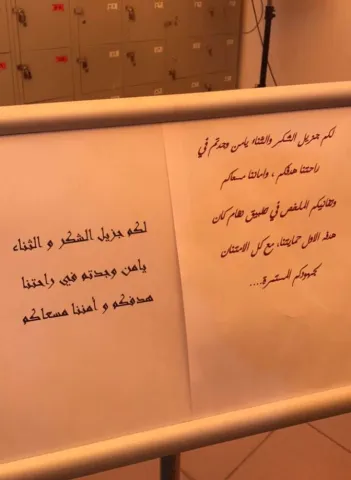 لكم جزيل الشكر والثناء يامن وجدتم في
راحتنا هدفكم ، واماننا مسعاكم
وتفانيكم المخلص في تطبيق نظام كان
هدفه الاول حمايتنا، مع كل الامتنان
لجهودكم المستمرة....
لكم جزيل الشكر و الثناء
يامن وجدتم في راحتنا
هدفكم و أمننا مسعاكم